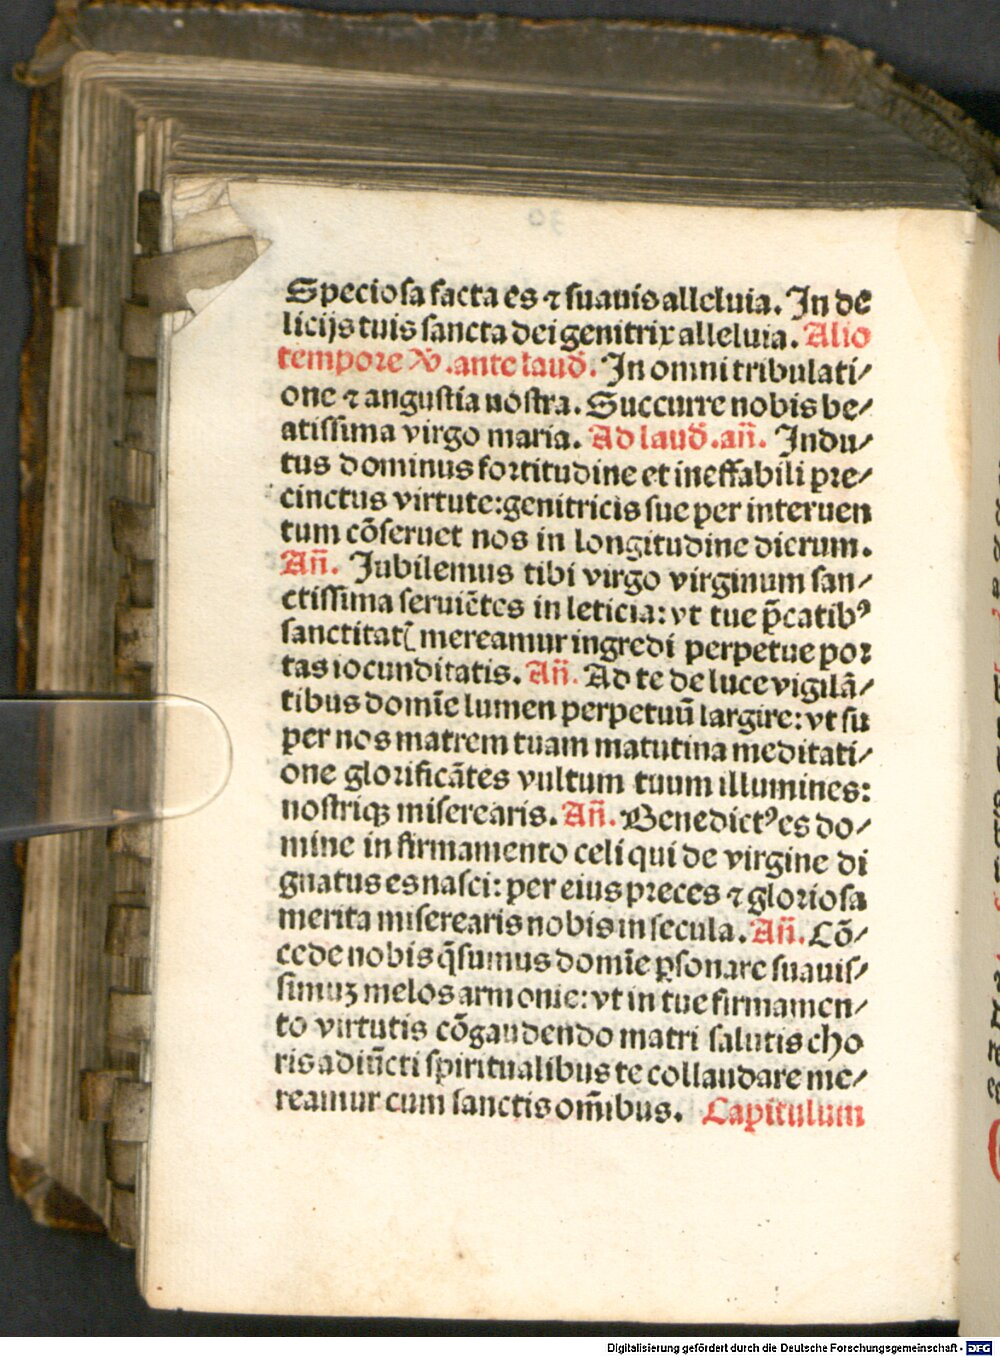 Speciosa facta es ⁊ suauis alleluia. In de
licijs tuis sancta dei genitrix alleluia. Alio
tempore V̛. ante laud̛. In omni tribulati⸗
one ⁊ angustia nostra. Succurre nobis be⸗
atissima virgo maria. Ad laud̛. añ. Indu⸗
tus dominus fortitudine et ineffabili pre⸗
cinctus virtute: genitricis sue per interuen
tum cōseruet nos in longitudine dierum.
Añ. Jubilemus tibi virgo virginum san⸗
ctissima seruiētes in leticia: vt tue p̄catibꝰ
sanctitatꝭ mereamur ingredi perpetue por
tas iocunditatis. Añ. Ad te de luce vigilā⸗
tibus domīe lumen perpetuū largire: vt su
per nos matrem tuam matutina meditati⸗
one glorificātes vultum tuum illumines:
nostriqꝫ miserearis. Añ. Benedictꝰ es do⸗
mine in firmamento celi qui de virgine di
gnatus es nasci: per eius preces ⁊ gloriosa
merita miserearis nobis in secula. Añ. Cō⸗
cede nobis q̄sumus domīe ꝑsonare suauis⸗
simuꝫ melos armonie: vt in tue firmamen⸗
to virtutis cōgaudendo matri salutis cho
ris adiūcti spiritualibus te collaudare me⸗
reamur cum sanctis om̄ibus. Capitulum
Digitalisierung gefördert durch die Deutsche Forschungsgemeinschaft - DFG